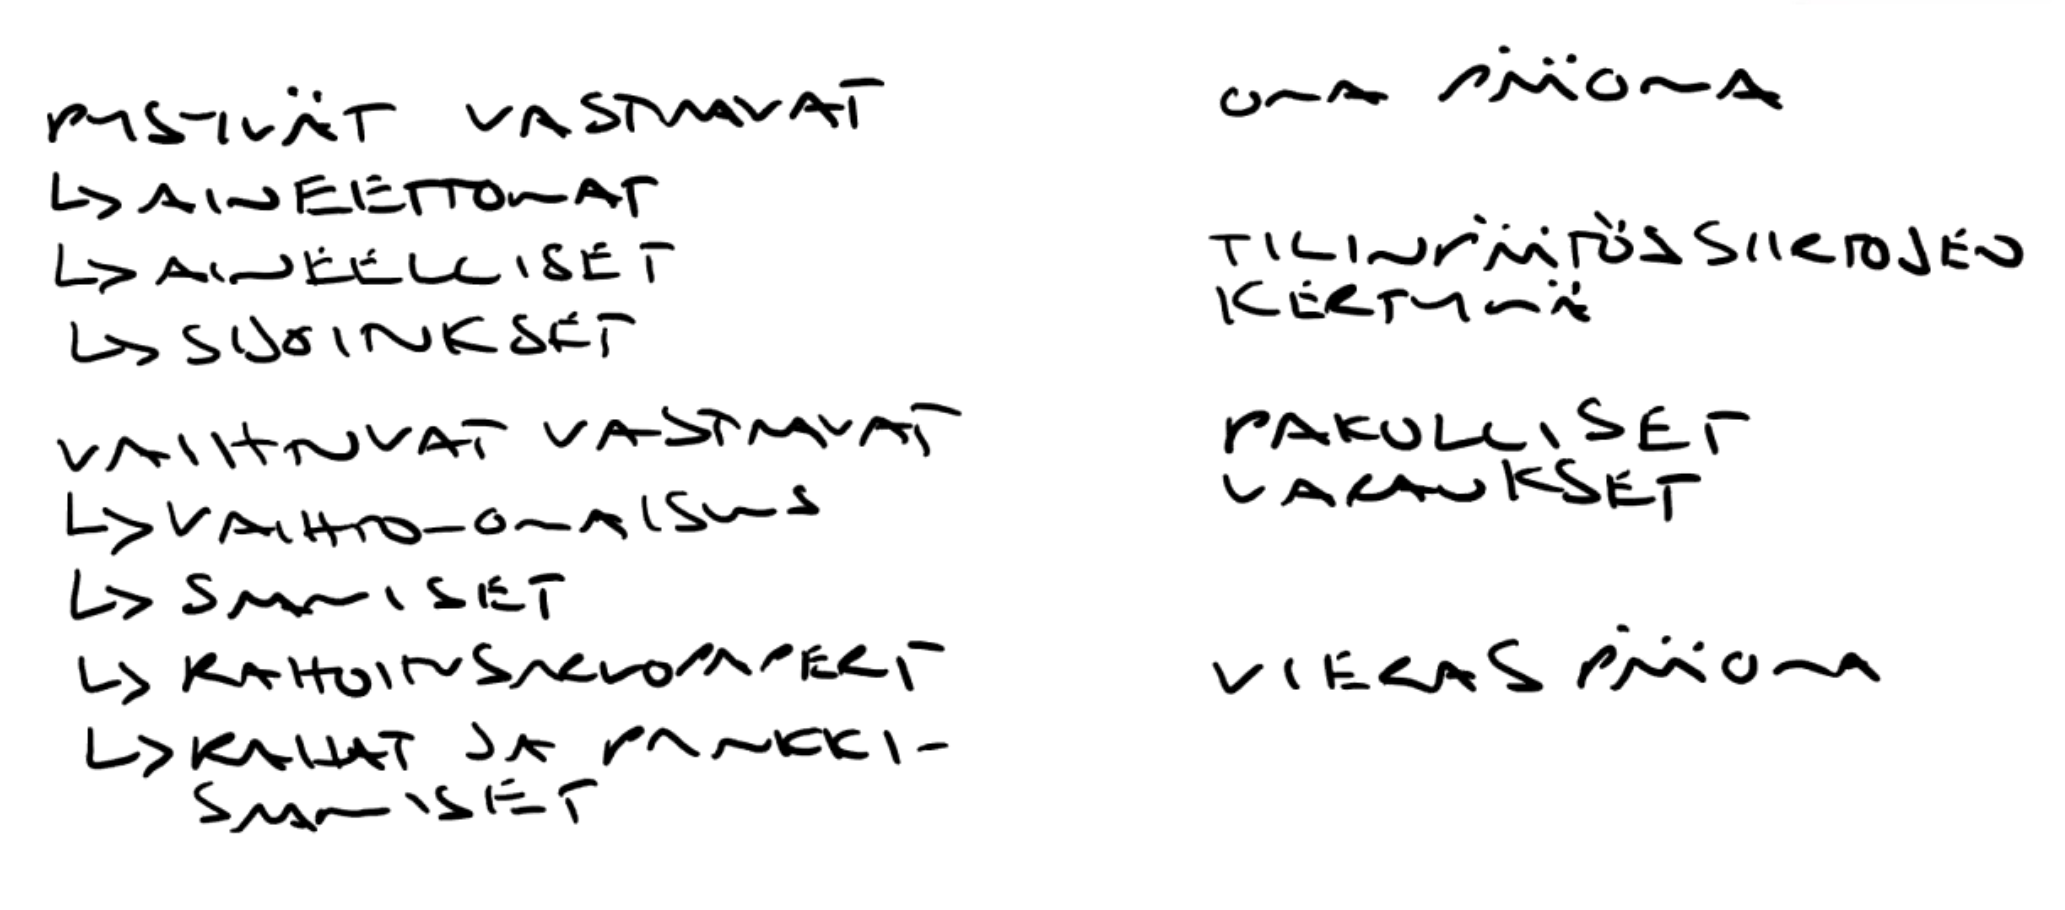 PYSYVÄT VASTAAVAT
↳ AINEETTOMAT
↳ AINEELLISET
↳ SIJOITUKSET
VAIHTUVAT VASTAAVAT
↳ VAIHTO-OMAISUUS
↳ SAAMISET
↳ RAHOITUSARVOPAPERIT
↳ RAHAT JA PANKKI-
SAAMISET
OMA PÄÄOMA
TILINPÄÄTÖSSIIRTOJEN
KERTYMÄ
PAKOLLISET
VARAUKSET
VIERAS PÄÄOMA